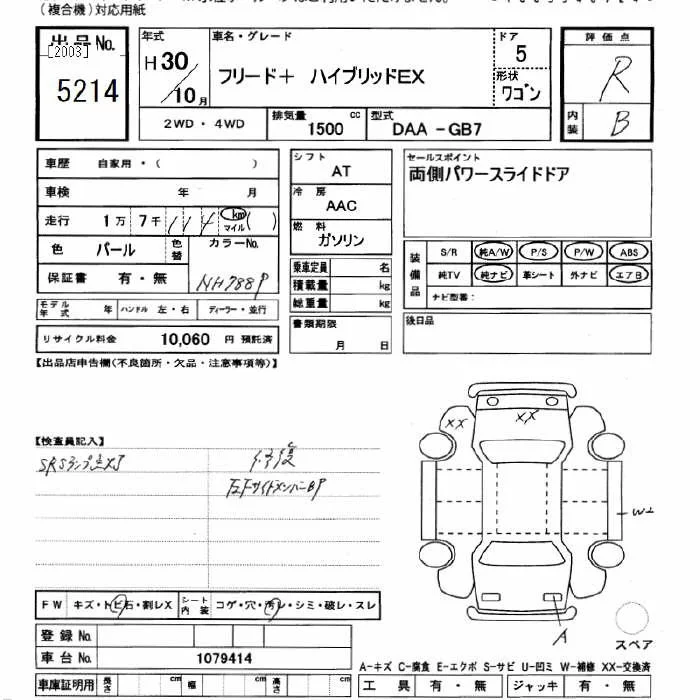 (複合機)対応用紙
出品No.
[2003]
5214
年式 車名・グレード ドア 評価点
H30/10月 フリード＋ ハイブリッドEX 5 R
形状
ワゴン
2WD・4WD 排気量 1500 cc 型式 DAA -GB7 内装 B
車歴 自家用・( ) シフト AT セールスポイント
両側パワースライドドア
車検 年 月 冷房 AAC
走行 1万 7千 km マイル ( ) 燃料 ガソリン
色 パール 色替 カラーNo. NH788P
装備品 S/R 純A/W P/S P/W ABS
保証書 有・無 乗車定員 名 純TV 純ナビ 革シート 外ナビ エアB
積載量 kg ナビ型番:
モデル年式 年 ハンドル 左・右 ディーラー・並行 総重量 kg
リサイクル料金 10,060 円 預託済 書類期限 月 日 後日品
【出品店申告欄(不良箇所・欠品・注意事項等)】
XX XX
【検査員記入】
W2
FW キズ・トビ石・割レX シート内装 コゲ・穴・汚レ・シミ・破レ・スレ
登録No.
A スペア
車台No. 1079414
A-キズ C-腐食 E-エクボ S-サビ U-凹ミ W-補修 XX-交換済
車庫証明用 長さ cm 幅 cm 高さ cm 工具 有・無 ジャッキ 有・無